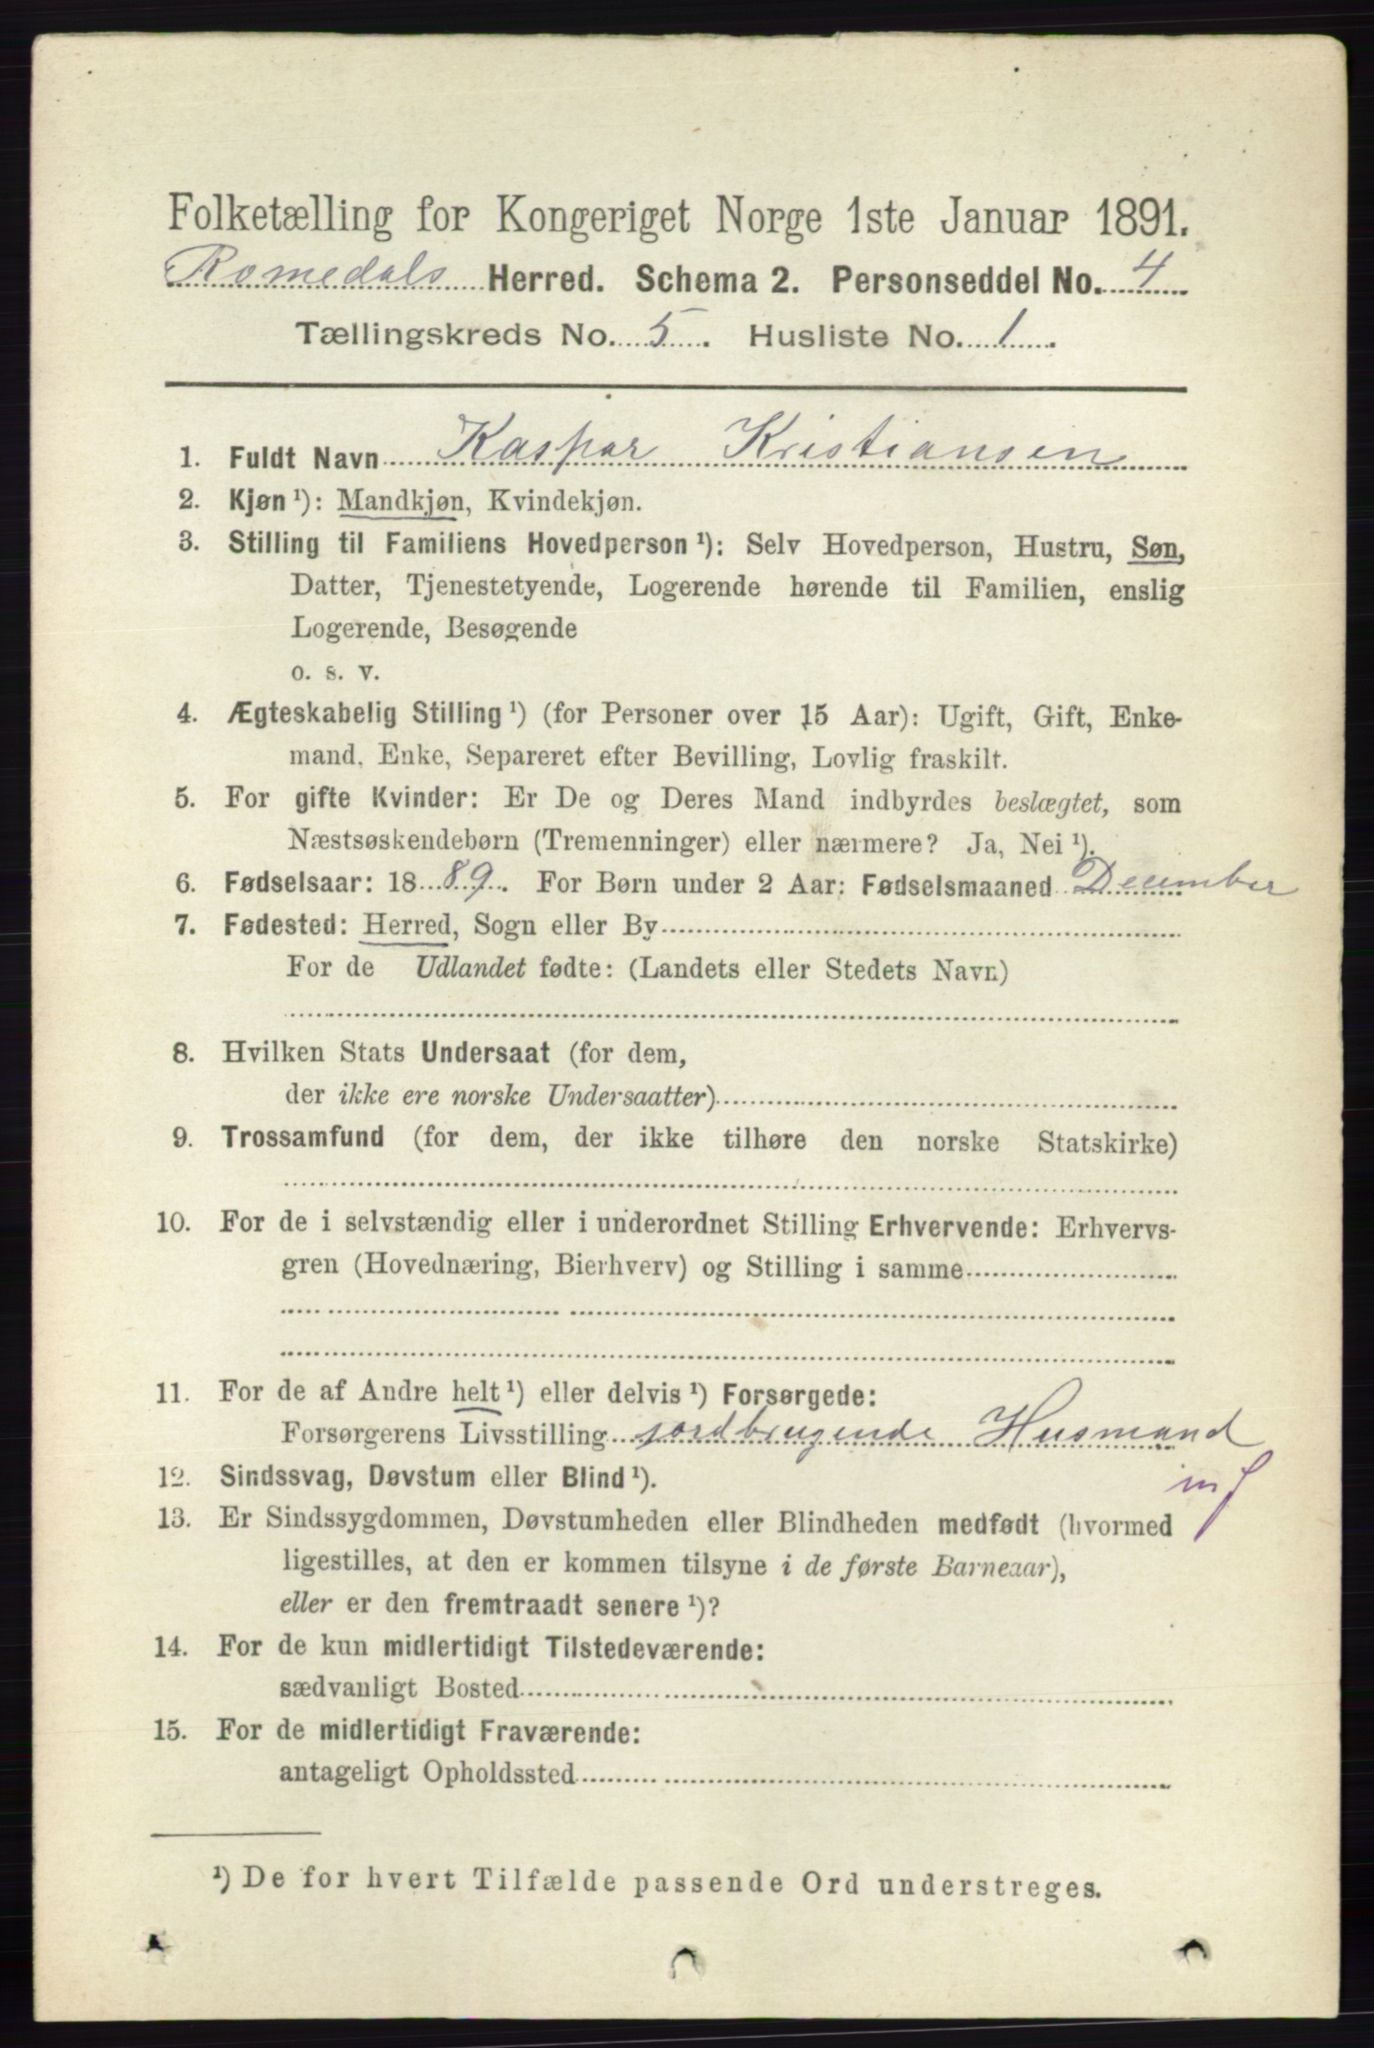 Folketælling for Kongeriget Norge 1ste Januar 1891.
Romedals Herred. Schema 2. Personseddel No. 4
Tællingskreds No. 5. Husliste No. 1.
1. Fuldt Navn Kaspar Kristiansen
2. Kjøn ¹): Mandkjøn, Kvindekjøn.
3. Stilling til Familiens Hovedperson ¹): Selv Hovedperson, Hustru, Søn,
Datter, Tjenestetyende, Logerende hørende til Familien, enslig
Logerende, Besøgende
o. s. v.
4. Ægteskabelig Stilling ¹) (for Personer over 15 Aar): Ugift, Gift, Enke-
mand, Enke, Separeret efter Bevilling, Lovlig fraskilt.
5. For gifte Kvinder: Er De og Deres Mand indbyrdes beslægtet, som
Næstsøskendebørn (Tremenninger) eller nærmere? Ja, Nei ¹).
6. Fødselsaar: 1889. For Børn under 2 Aar: Fødselsmaaned December
7. Fødested: Herred, Sogn eller By
For de Udlandet fødte: (Landets eller Stedets Navn)
8. Hvilken Stats Undersaat (for dem,
der ikke ere norske Undersaatter)
9. Trossamfund (for dem, der ikke tilhøre den norske Statskirke)
10. For de i selvstændig eller i underordnet Stilling Erhvervende: Erhvervs-
gren (Hovednæring, Bierhverv) og Stilling i samme
11. For de af Andre helt ¹) eller delvis ¹) Forsørgede:
Forsørgerens Livsstilling jordbrugende Husmand
mf
12. Sindssvag, Døvstum eller Blind ¹).
13. Er Sindssygdommen, Døvstumheden eller Blindheden medfødt (hvormed
ligestilles, at den er kommen tilsyne i de første Barneaar),
eller er den fremtraadt senere ¹)?
14. For de kun midlertidigt Tilstedeværende:
sædvanligt Bosted
15. For de midlertidigt Fraværende:
antageligt Opholdssted
¹) De for hvert Tilfælde passende Ord understreges.